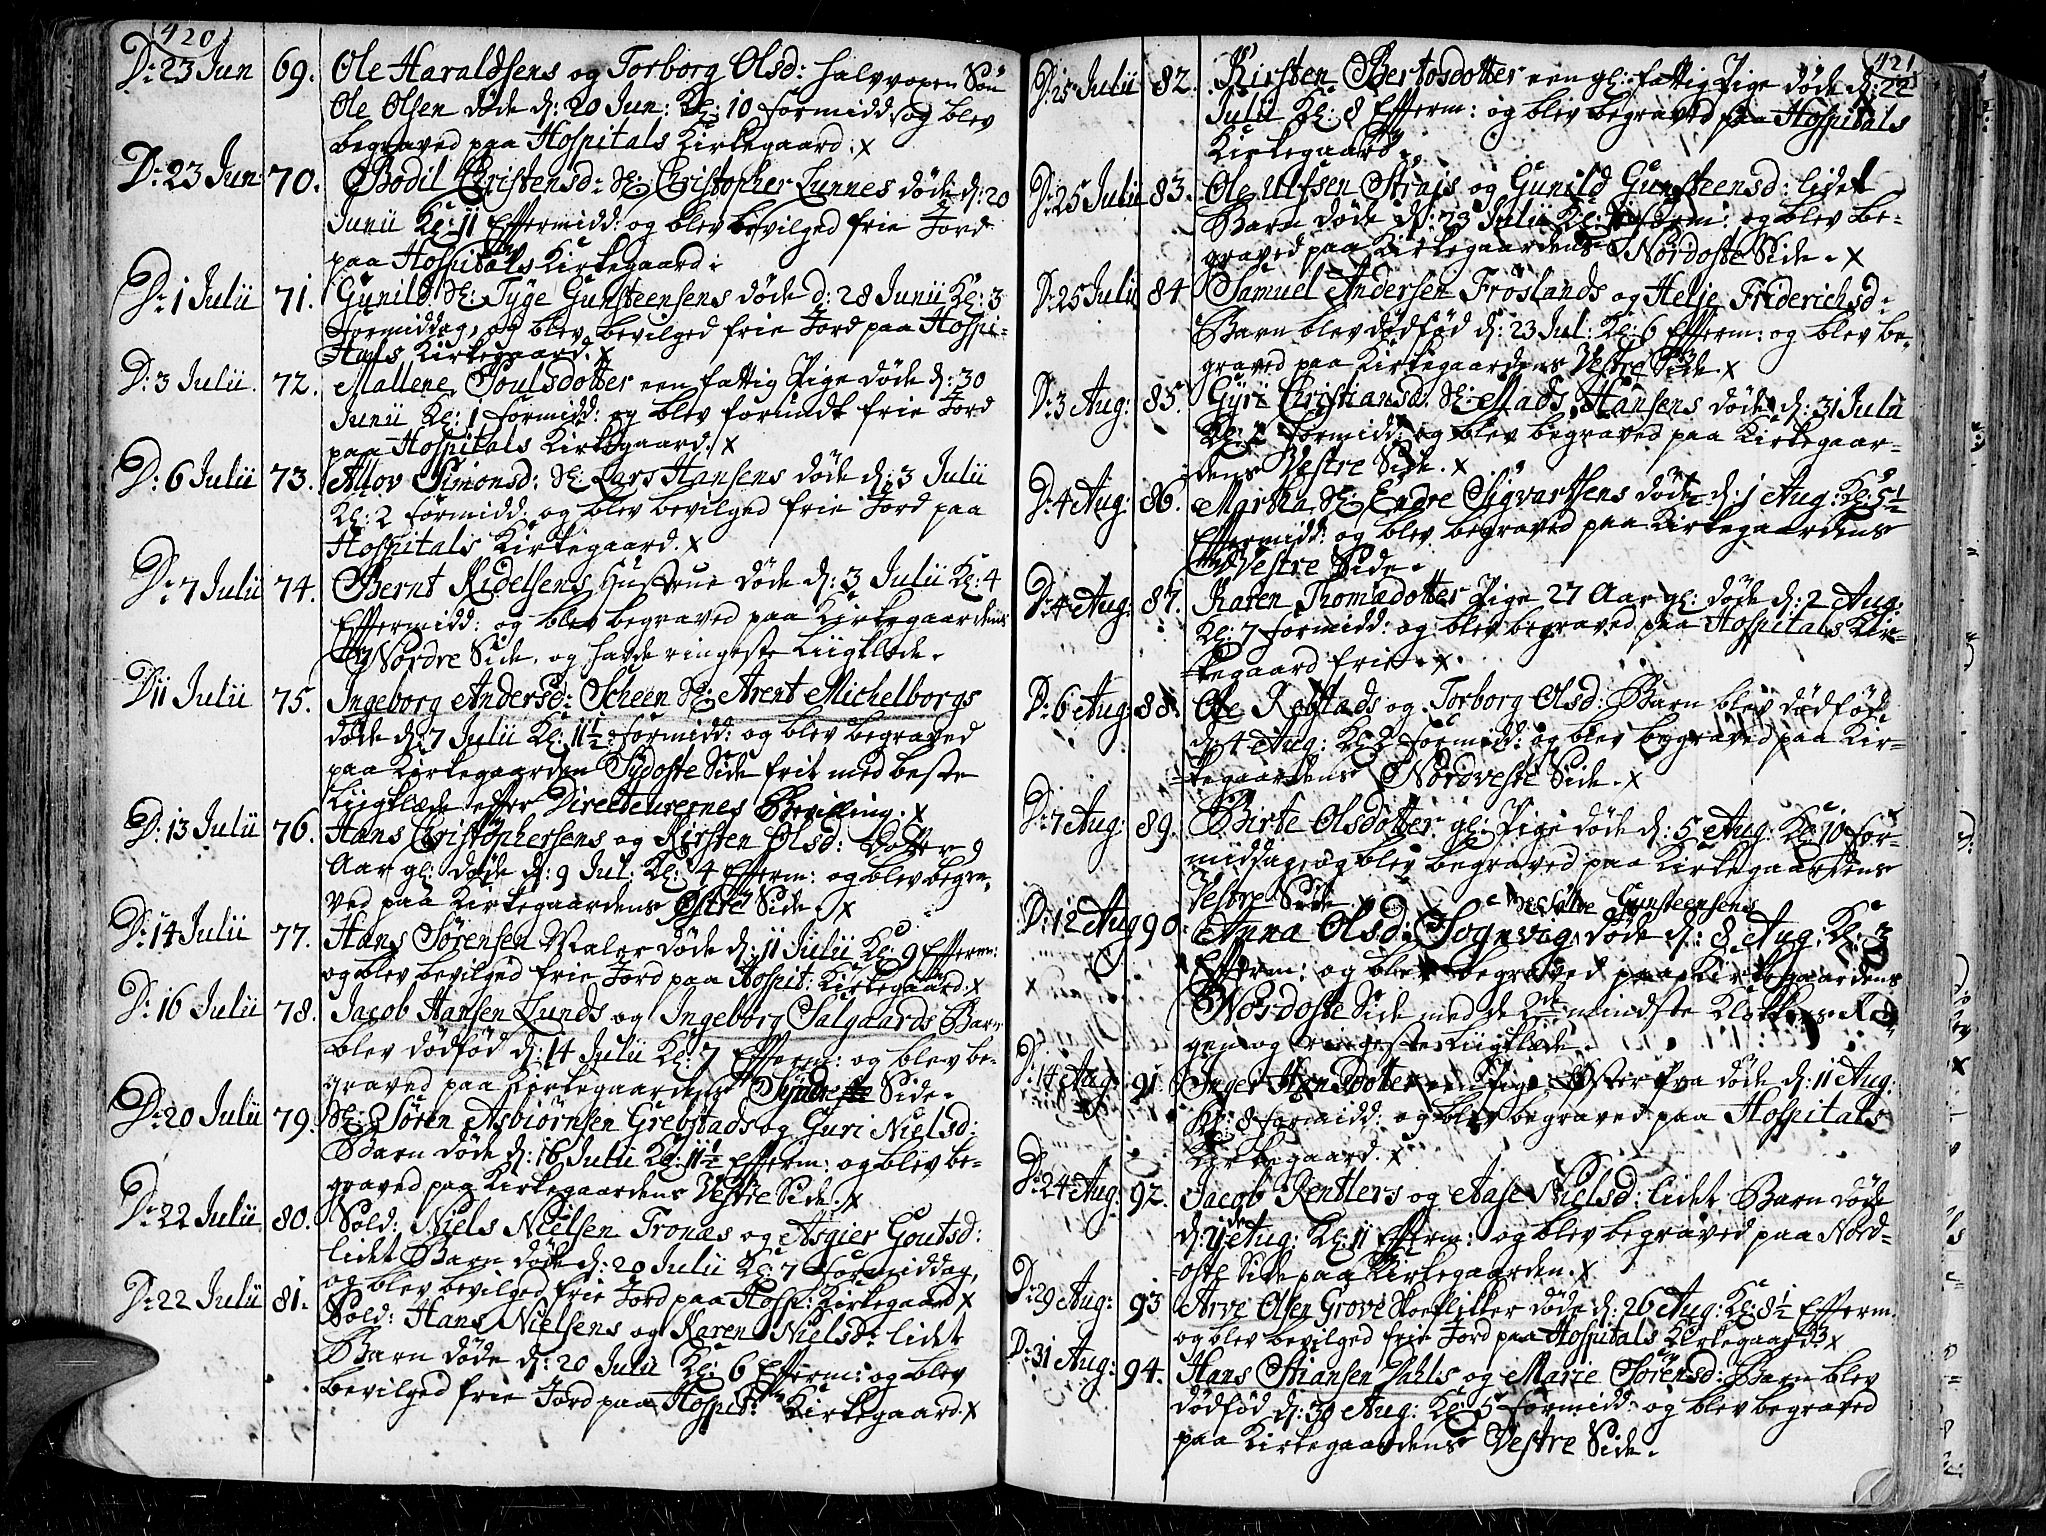 420
D: 23 Jun 69. Ole Haraldsens og Torborg Olsd: halvvoxen Søn
Ole Olsen døde d: 20 Jun: Kl: 10 formidd: og blev
begraved paa Hospitals Kirkegaard. x
D: 23 Jun 70. Bodil Christensd: Sl: Christopher Lunnes døde d: 20
Junii Kl: 11 Eftermidd: og blev bevilged frie Jord
paa Hospitals Kirkegaard.
D: 1 Julii 71. Gunild Sl: Tyge Gunsteensens døde d: 28 Junii Kl: 3
formiddag, og blev bevilged frie Jord paa Hospi-
tals Kirkegaard. x
D: 3 Julii. 72. Mallene Poulsdotter een fattig Pige døde d: 30
Junii Kl: 1 formidd: og blev forundt frie Jord
paa Hospitals Kirkegaard. x
D: 6 Julii 73. Allov Simonsd: Sl: Lars Hansens døde d: 3 Julii
Kl: 2 formidd: og blev bevilged frie Jord paa
Hospitals Kirkegaard. x
D: 7 Julii 74. Bernt Ridelsens Hustrue døde d: 3 Julii Kl: 4
Eftermidd: og blev begraved paa Kirkegaardens
Nordre Side, og havde ringeste Liigklæde.
D: 11 Julii 75. Ingeborg Andersd: Scheen Sl: Arent Michelborgs
døde d: 7 Julii Kl: 11½ formidd: og blev begraved
paa Kirkegaarden Sydoste Side frit med beste
Liigklæde efter Directeurernes Bevilling. x
D: 13 Julii 76. Hans Christophersens og Kirsten Olsd: Dotter 9
Aar gl: døde d: 9 Jul: Kl: 4 Efterm: og blev begra-
ved paa Kirkegaardens Østre Side. x
D: 14 Julii 77. Hans Sørensen Maler døde d: 11 Julii Kl: 9 Efterm:
og blev bevilged frie Jord paa Hospit: Kirkegaard. x
D: 16 Julii 78. Jacob Hansen Lunds og Ingeborg Salgaards Barn
blev dødfød d: 14 Julii Kl: 7 Efterm: og blev be-
graved paa Kirkegaardens Syndre Side.
D: 20 Julii 79. Sl: Søren Asbiørnsen Grebstads og Guri Nielsd:
Barn døde d: 16 Julii Kl: 11½ Efterm: og blev be-
graved paa Kirkegaardens Vestre Side. x
D: 22 Julii 80. Sold: Niels Nielsen Tronæs og Asgier Goutsd:
lidet Barn døde d: 20 Julii Kl: 7 Formiddag,
og blev bevilged frie Jord paa Hosp: Kirkegaard x
D: 22 Julii 81. Sold: Hans Nielsens og Karen Nielsd: lidet
Barn døde d: 20 Julii Kl: 6 Efterm: og blev
bevilged frie Jord paa Hospit: Kirkegaard. x
421
D: 25 Julii 82. Kirsten Bertosdotter een gl: fattig Pige døde d: 22
Julii Kl: 8 Efterm: og blev begraved paa Hospitals
Kirkegaard.
D: 25 Julii 83. Ole Ulfsen Strajs og Gunild Gunsteensd: lidet
Barn døde d: 23 Julii Kl: Efterm: og blev be-
graved paa Kirkegaardens Nordoste Side. x
D: 25 Julii 84 Samuel Andersen Frøslands og Helje Friderichsd:
Barn blev dødfød d: 23 Jul: Kl: 6 Efterm: og blev be-
graved paa Kirkegaardens Vestre Side. x
D: 3 Aug: 85. Gyri Christiansd: Sl: Mads Hansens døde d: 31 Julii
Kl: formidd: og blev begraved paa Kirkegaar-
dens Vestre Side. x
D: 4 Aug: 86. Martha Sl: Endre Sigvartsens døde d: 1 Aug: Kl: 5½
Eftermidd: og blev begraved paa Kirkegaardens
Vestre Side.
D: 4 Aug: 87. Karen Thomædotter Pige 27 Aar gl: døde d: 2 Aug:
Kl: 7 formidd: og blev begraved paa Hospitals Kir-
kegaard frie. x
D: 6 Aug: 88. Ole Robstads og Torborg Olsd: Barn blev dødfød
d: 4 Aug: Kl: 2 formidd: og blev begraved paa Kir-
kegaardens Nordveste Side. x
D: 7 Aug: 89. Birte Olsdotter gl: Pige døde d: 5 Aug: Kl: 10 for-
middag, og blev begraved paa Kirkegaardens
Vestre Side. x
Gunsteensens
D: 12 Aug 90. Anna Olsd: Sognvig døde d: 8 Aug: Kl: 3
Efterm: og blev begraved paa Kirkegaardens
Nordoste Side med de 2de mindste Klokkers Rin-
gen og ringeste Liigklæde.
D: 14 Aug: 91. Inger døde d: 11 Aug:
Kl: 8 formidd: og blev begraved paa Hospitals
Kirkegaard. x
D: 24 Aug: 92. Jacob Rentlers og Aase Nielsd: lidet Barn døde
d: 21 Aug: Kl: 11 Efterm: og blev begraved paa Nord-
oste Side paa Kirkegaarden. x
D: 29 Aug: 93 Arve Olsen Grove Skoeflikker døde d: 26 Aug: Kl: 8½ Efterm.
og blev bevilged frie Jord paa Hospitals Kirkegaard. x
D: 31 Aug: 94. Hans Stiansen Dahls og Marie Sørensd: Barn blev
dødfød d: 30 Aug: Kl: 5 formidd: og blev begraved
paa Kirkegaardens Vestre Side.